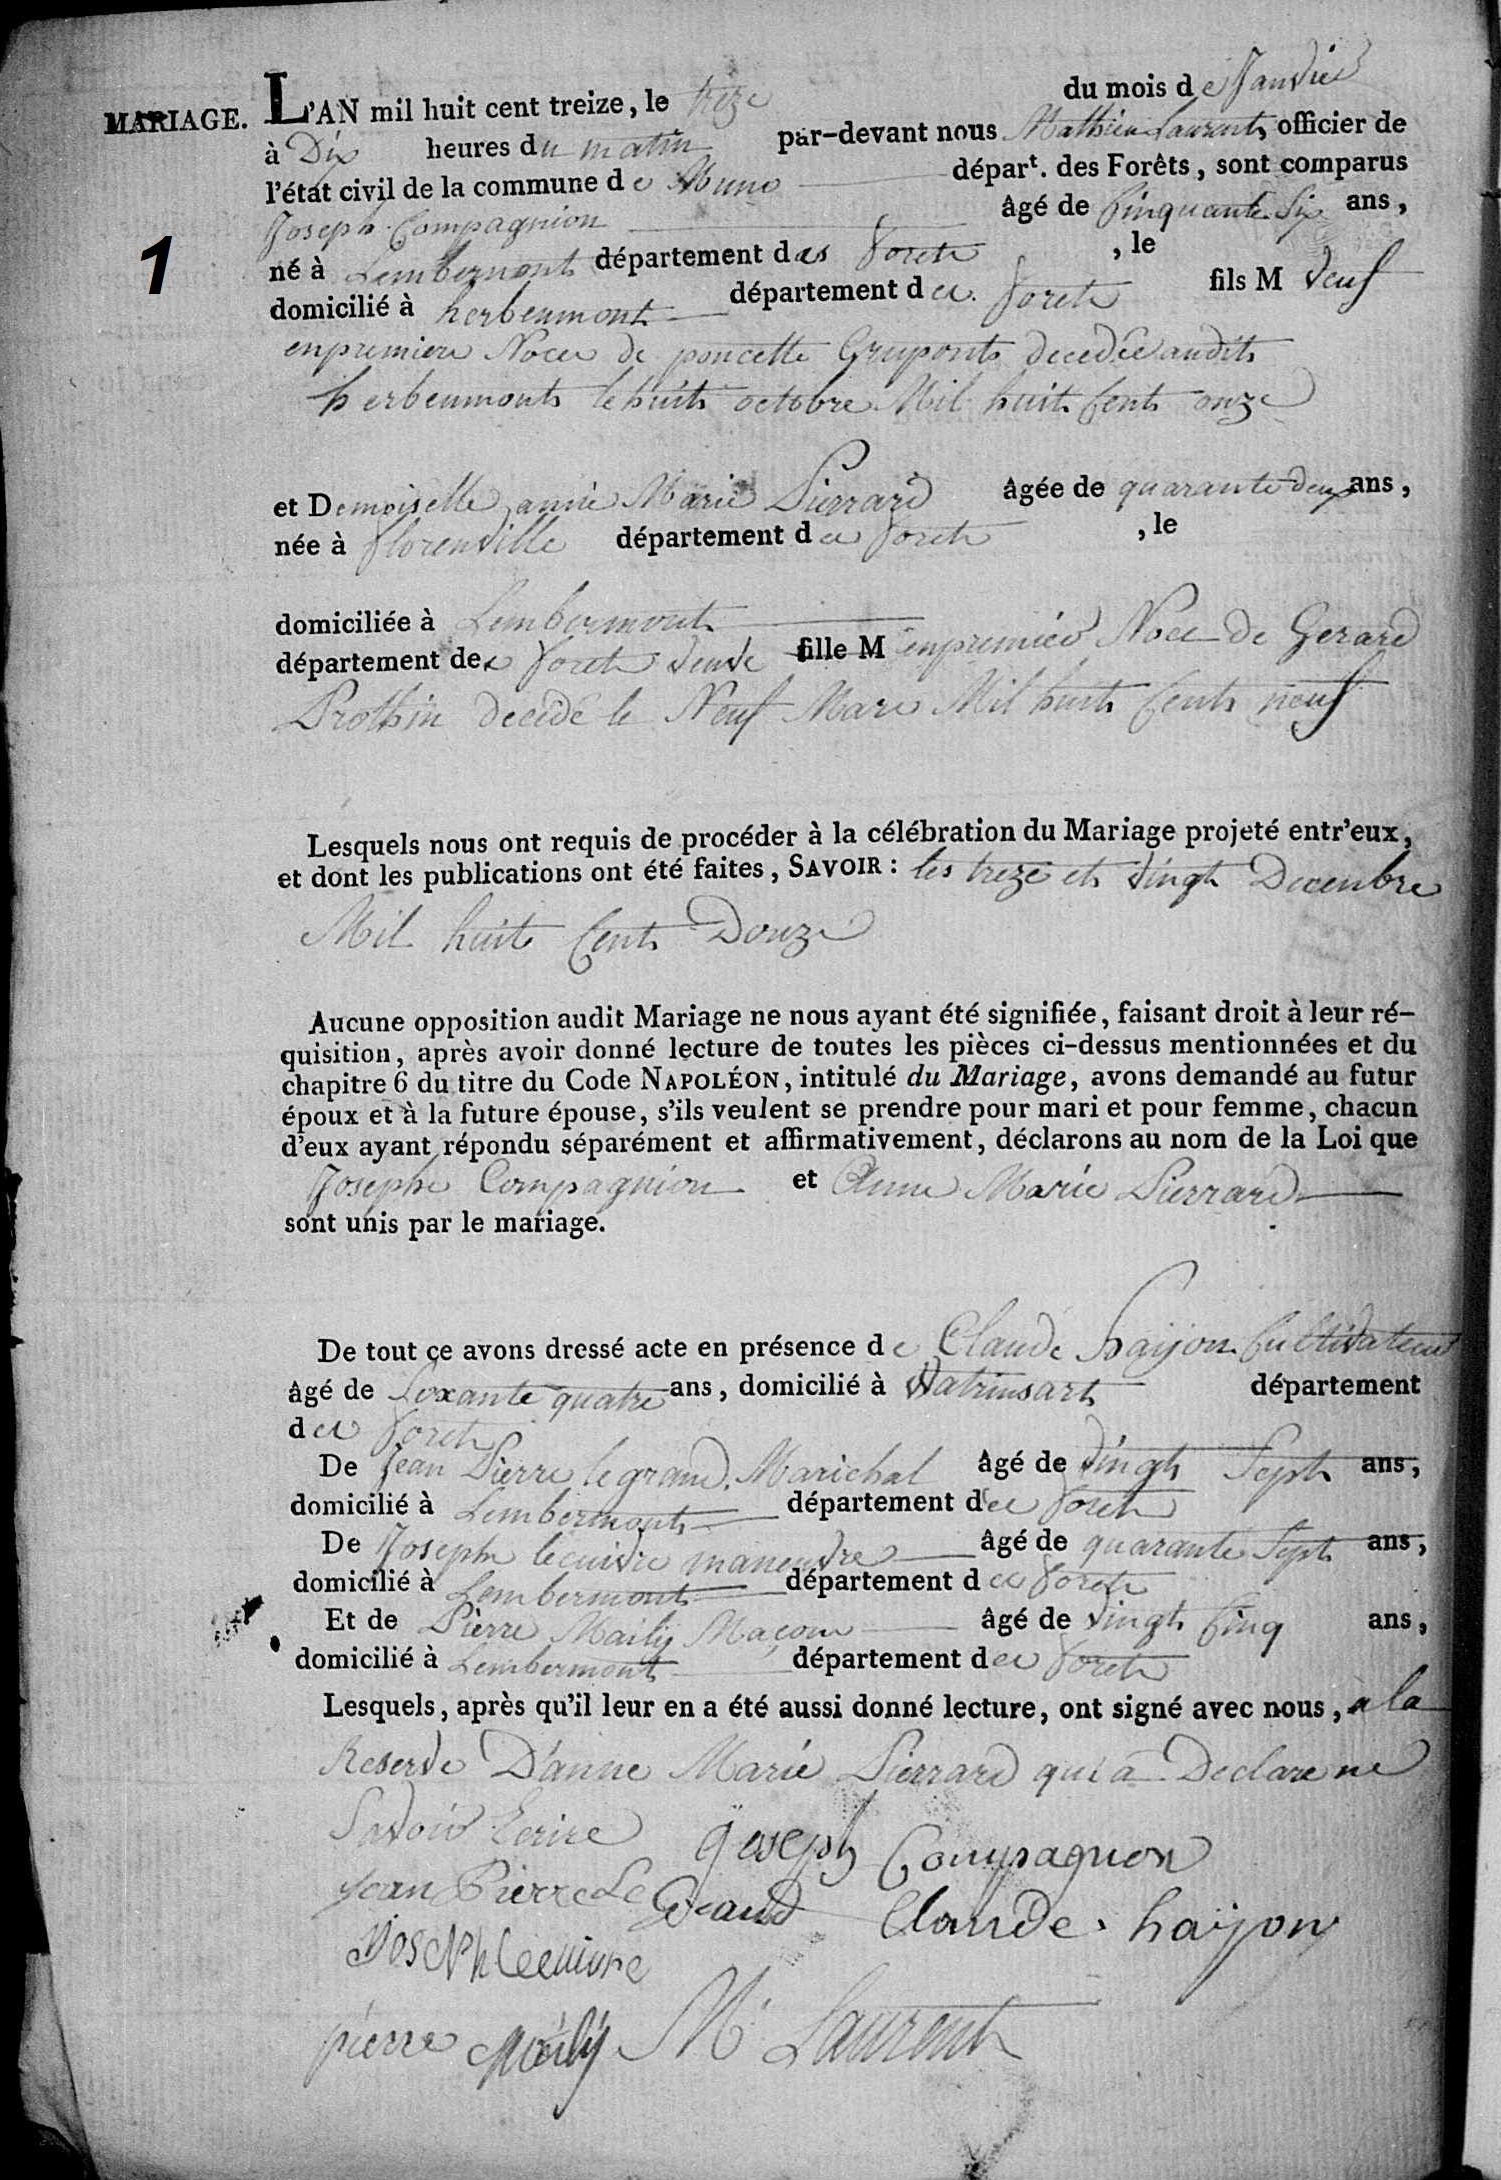 MARIAGE.
1
L'AN mil huit cent treize, le treize du mois de Janvier
à Dix heures du matin par-devant nous Mathieu Laurent, officier de
l'état civil de la commune de Muno départ. des Forêts, sont comparus
Joseph Compagnion âgé de Cinquante Six ans,
né à Lembermont département des Foret , le
domicilié à herbeumont département des foret fils M veuf
en premiere Noces de poncette Gruponts decedée audit
herbeumont le huit octobre Mil huit Cent onze
et Demoiselle anne Marie Pierrard âgée de quarante deux ans,
née à florenville département des foret , le
domiciliée à Lembermont
département des foret veuve fille M en premier Noce de Gerard
Prothin decedé le Neuf Mars Mil huit Cent neuf
Lesquels nous ont requis de procéder à la célébration du Mariage projeté entr'eux,
et dont les publications ont été faites, SAVOIR : les treze et vingt Decenbre
Mil huit Cent Douze
Aucune opposition audit Mariage ne nous ayant été signifiée, faisant droit à leur ré-
quisition, après avoir donné lecture de toutes les pièces ci-dessus mentionnées et du
chapitre 6 du titre du Code NAPOLÉON, intitulé du Mariage, avons demandé au futur
époux et à la future épouse, s'ils veulent se prendre pour mari et pour femme, chacun
d'eux ayant répondu séparément et affirmativement, déclarons au nom de la Loi que
Joseph Compagnion et Anne Marie Pierrard
sont unis par le mariage.
De tout ce avons dressé acte en présence de Claude hayon Cultivateur
âgé de Soxante quatre ans, domicilié à Watrinsart département
des foret
De Jean Pierre le grand Marichal âgé de vingt Sept ans,
domicilié à Lembermont département des foret
De Joseph lecuivre maneuvre âgé de quarante Sept ans,
domicilié à Lembermont département des foret
Et de Pierre Maily Maçon âgé de vingt Cinq ans,
domicilié à Lembermont département des foret
Lesquels, après qu'il leur en a été aussi donné lecture, ont signé avec nous, a la
Reserve D'anne Marie Pierrard qui a Declare ne
Savoir Ecrire Joseph Compagnon
Jean Pierre Le Grand Claude hayon
Joseph lecuivre
pierre Maily M Laurent